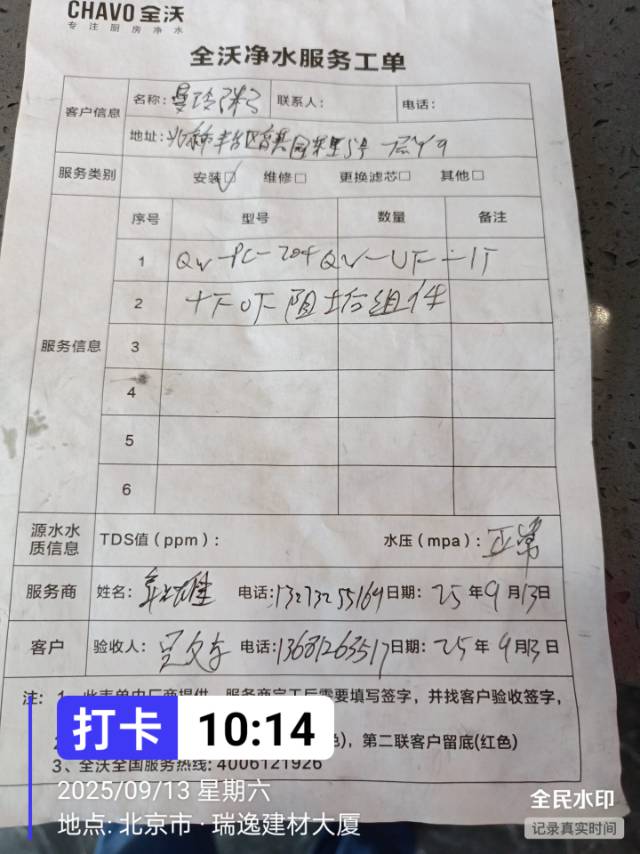 CHAVO 全沃
专注厨房净水
全沃净水服务工单
客户信息
名称:
联系人:
电话:
地址:
服务类别 安装□✓ 维修□ 更换滤芯□ 其他□
服务信息
序号 型号 数量 备注
1
2 阻垢组件
3
4
5
6
源水水质信息 TDS值（ppm）: 水压（mpa）: 正常
服务商 姓名: 电话:13273255164 日期: 25年9月13日
客户 验收人: 电话:13681263517 日期: 25年9月13日
注: 1、此表单由厂商提供，服务商完工后需要填写签字，并找客户验收签字，
),第二联客户留底(红色)
3、全沃全国服务热线: 4006121926
打卡 10:14
2025/09/13 星期六
地点: 北京市·瑞逸建材大厦
全民水印
记录真实时间